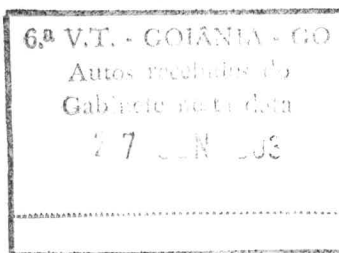 6.ª V.T. - GOIÂNIA - GO
Autos recebidos do
Gabinete nesta data
2 7